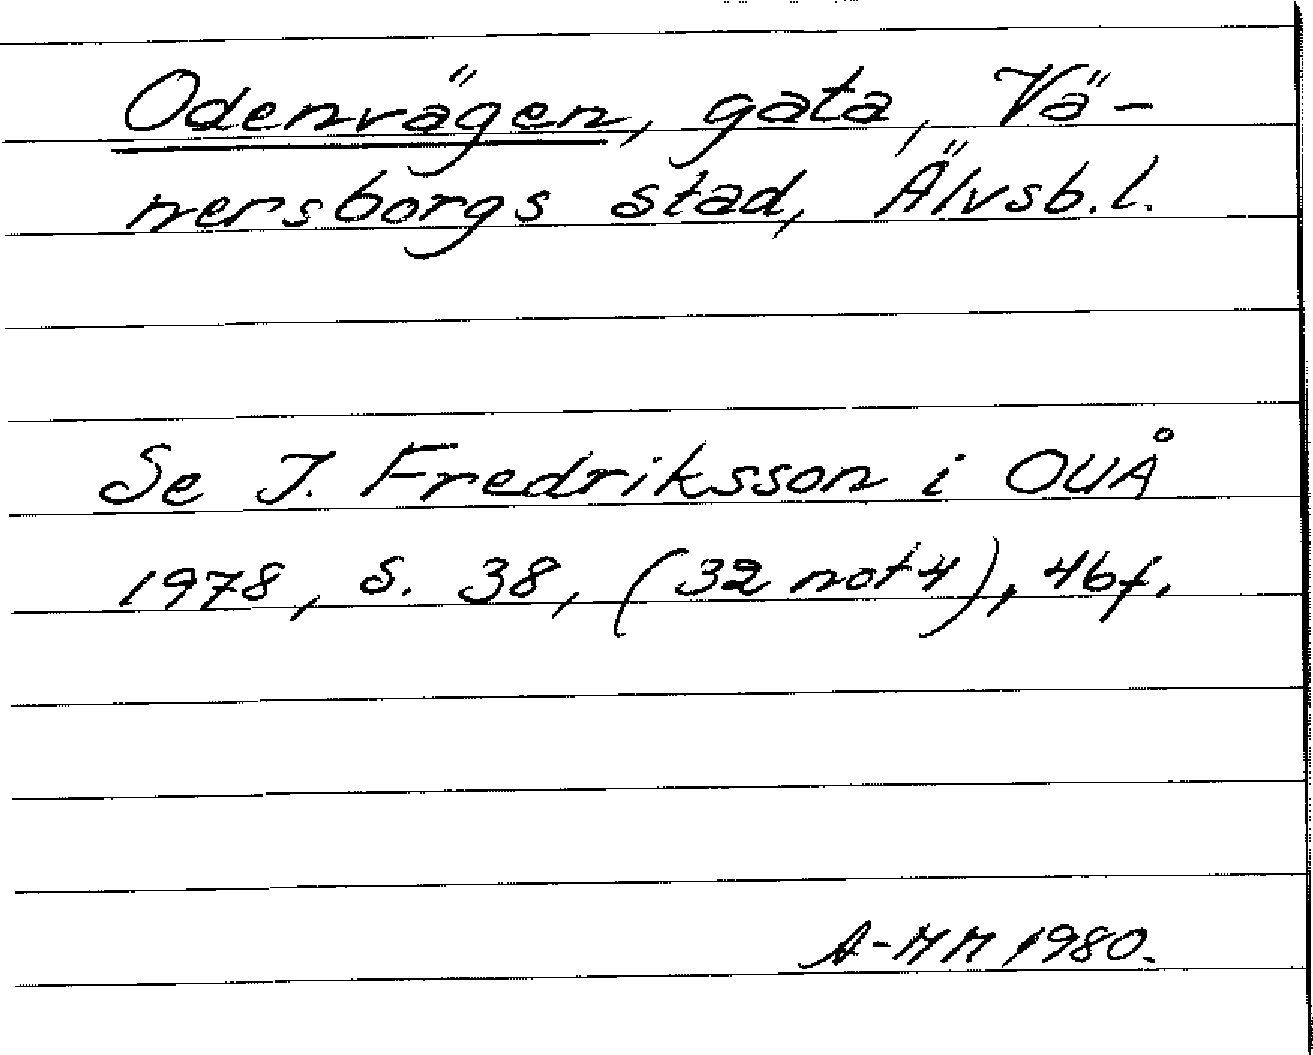 Odenvägen, gata, Vä-
nersborgs stad, Älvsb. l.
Se I. Fredriksson i OUÅ
1978, s. 38, (32 not 4), 46f.
A-MM 1980.